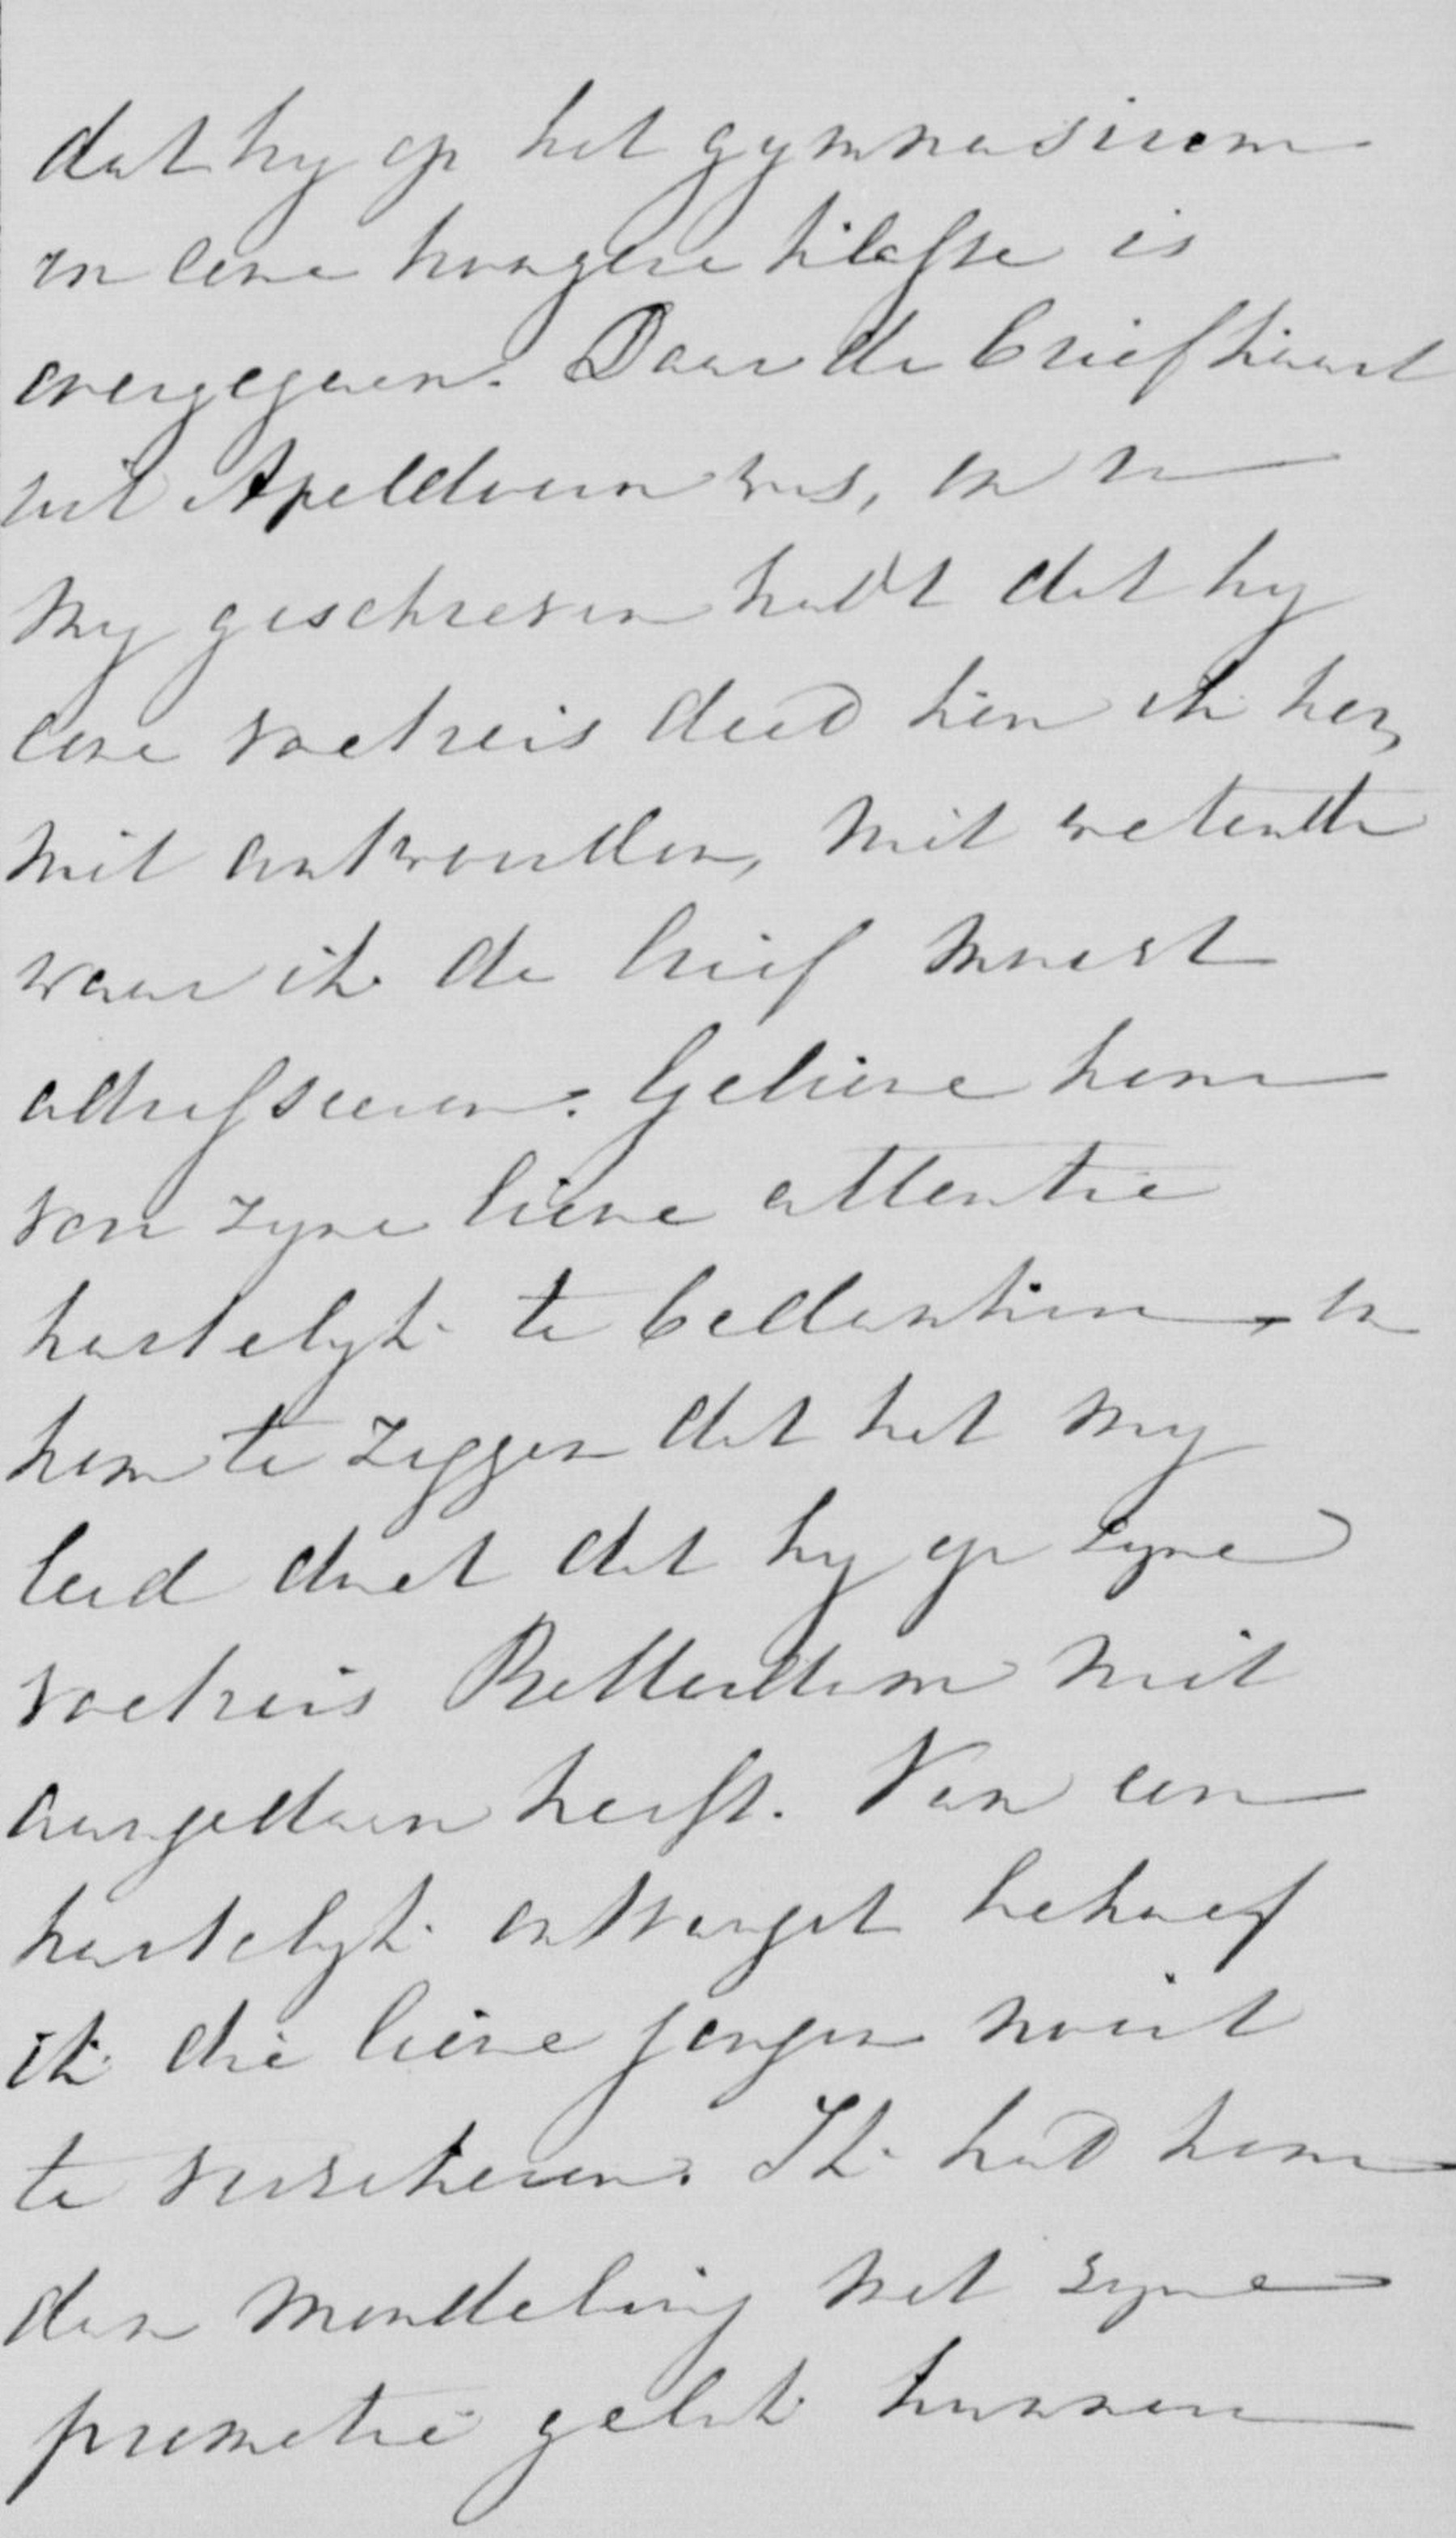 dat hy op het gymnasium
in eene hoogere klasse is
overgegaan. Daar de briefkaart
uit Apeldoorn was, en u
my geschreven hadt dat hy
eene voetreis deed kon ik hem
niet antwoorden, niet wetende
waar ik de brief moest
adresseeren. Gelieve hem
voor zyne lieve attentie
hartelyk te bedanken, en
hem te zeggen dat het my
leed doet dat hy op zyne
voetreis Rotterdam niet
aangedaan heeft. Van een
hartelyk ontvangst behoef
ik die lieve jongen nooit
te verzekeren. Ik had hem
dan mondeling met zyne
promotie geluk kunnen